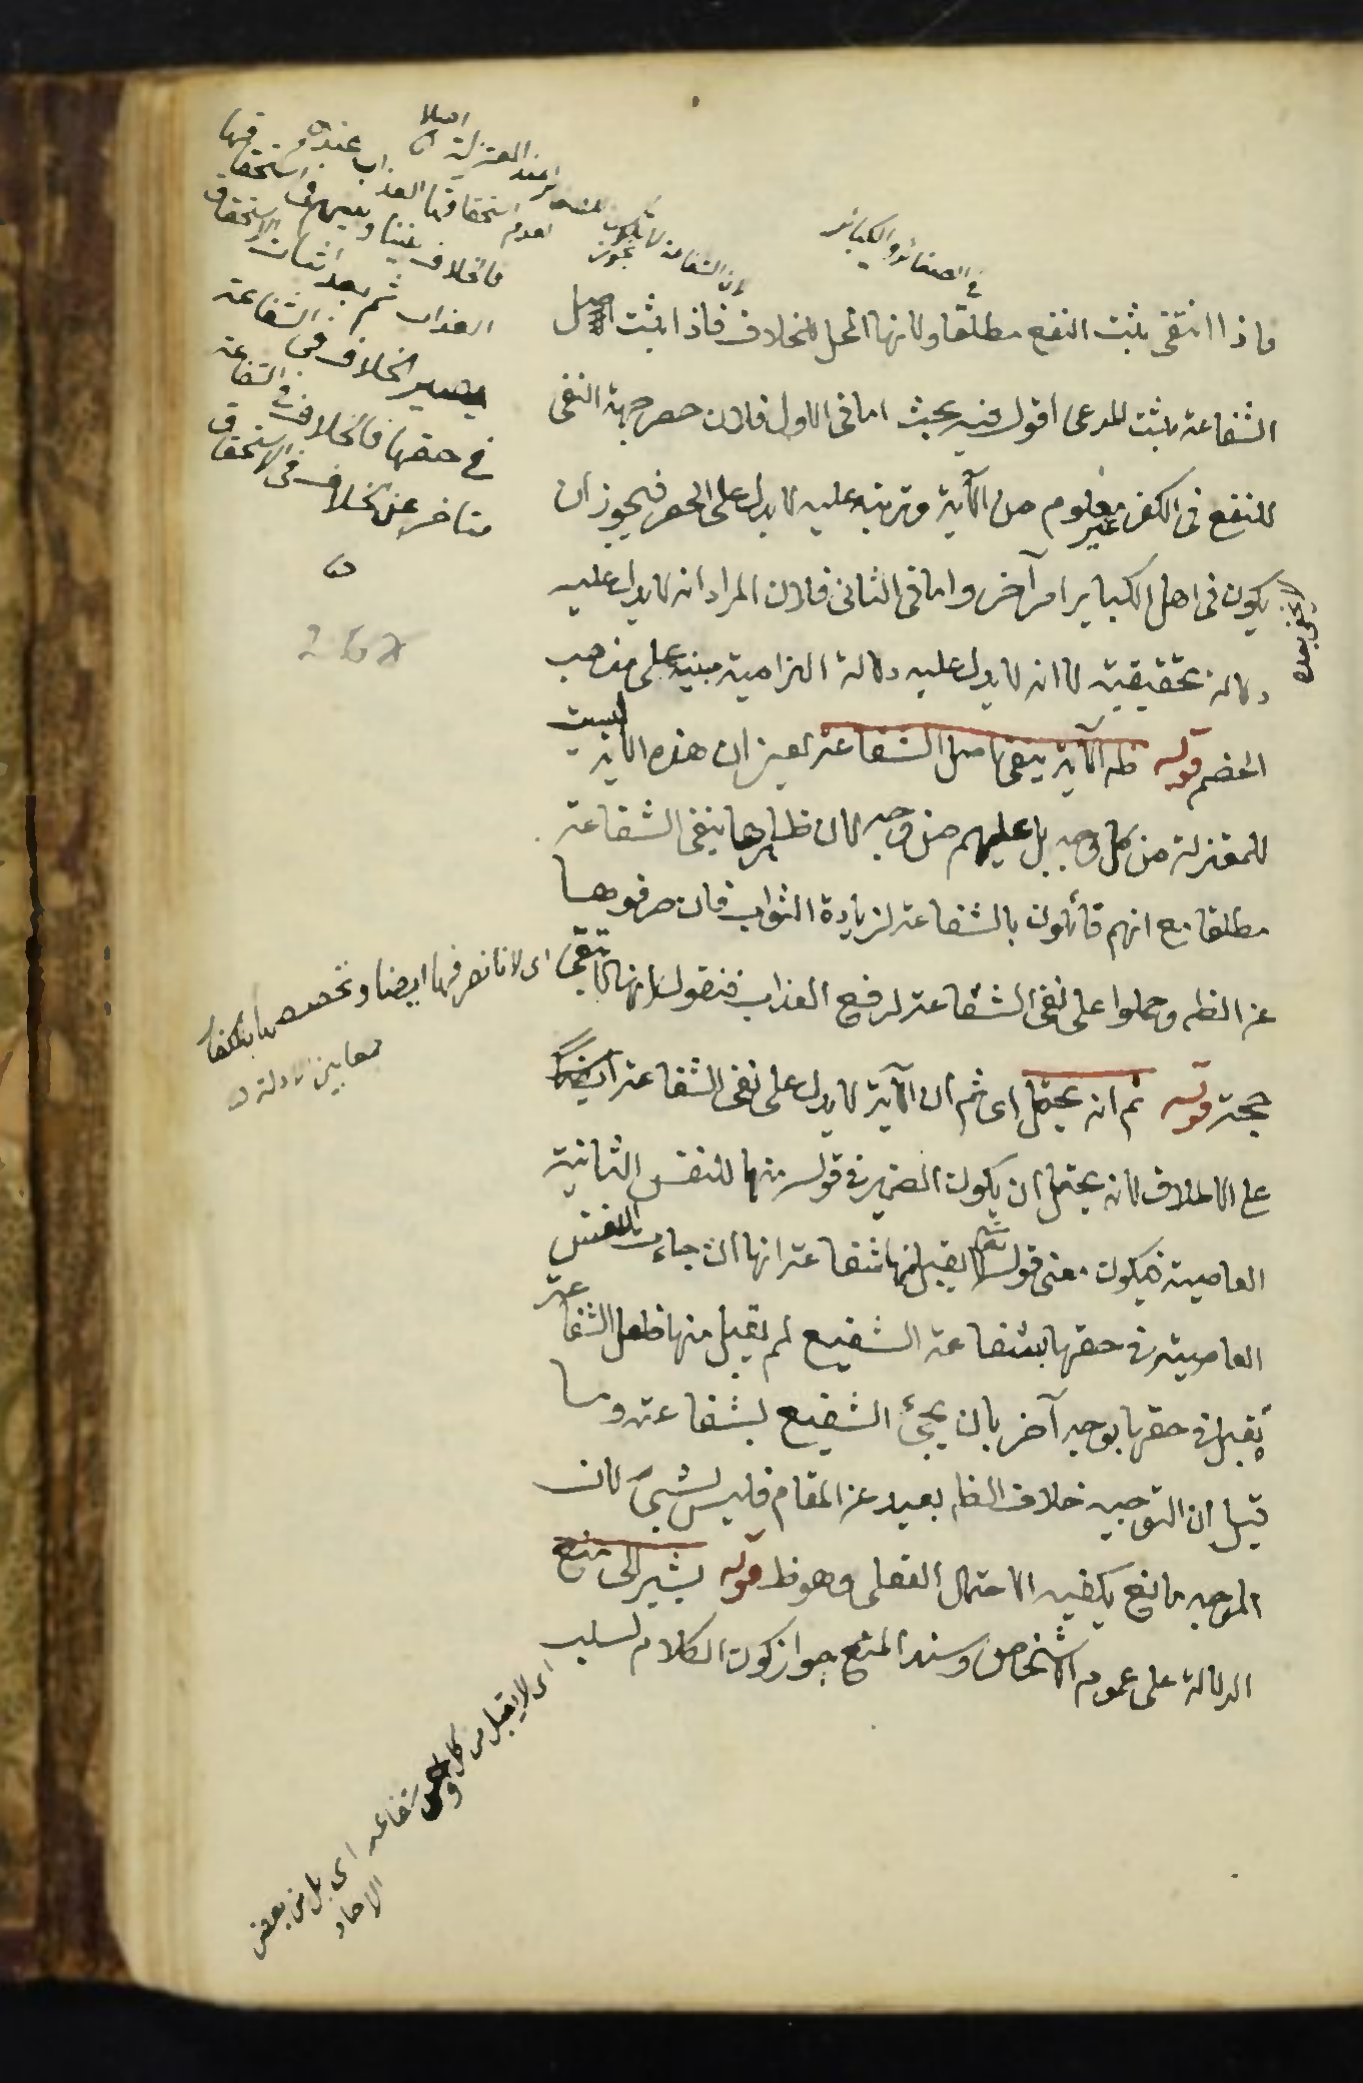 في الصغائر والكبائر
فاذا انتفى يثبت النفع مطلقا ولانها المحل للخلاف فاذا يثبت اصل
الشفاعة يثبت المدعى اقول فيه بحث اما في الاول فلان حصر جهة النفى
للنفع في الكفر غير معلوم من الآية وترتبه عليه لا يدل على الحصر فيجوز ان
يكون في اهل الكباير امر آخر واما في الثانى فلان المراد انه لا يدل عليه
لا يخفى بعده
دلالة تحقيقية لا انه لا يدل عليه دلالة الزامية مبنية على مذهب
الخصم قوله ظ الآية ينفى اصل الشفاعة يعنى ان هذه الاية ليست
للمعتزلة من كل وجه بل عليهم من وجه لان ظاهرها ينفى الشفاعة
مطلقا مع انهم قائلون بالشفاعة لزيادة الثواب فان صرفوها
عن الظ وحملوا على نفى الشفاعة لرفع العذاب فنقول انها لا تبقى
حجة قوله ثم انه يحتمل اى ثم ان الآية لا يدل على نفى الشفاعة
على الاطلاق لانه يحتمل ان يكون الضمير في قوله منها للنفس الثانية
العاصية فيكون معنى قوله تعالى لا يقبل منها شفاعة انها ان جاءت النفس
العاصية في حقها بشفاعة الشفيع لم يقبل منها فلعل الشفاعة
يقبل في حقها بوجه آخر بان يجئ الشفيع بشفاعته وما
قيل ان التوجيه خلاف الظ بعيد عن المقام فليس بشئ لان
الموجه مانع يكفيه الاحتمال العقلى وهو ظ قوله يشير الى منع
الدلالة على عموم الاشخاص وسند المنع جواز كون الكلام لسلب
لان الشفاعة لا تكون عند المعتزلة اصلا
لعدم استحقاقها العذاب عندهم
فالخلاف بيننا وبينهم في استحقاقها
العذاب ثم بعد اثبات الاستحقاق
يصير الخلاف في الشفاعة
في حقها فالخلاف في الشفاعة
متاخر عن الخلاف في الاستحقاق
268
اى لانا نصرفها ايضا ونخصصها بالكفار
جمعا بين الادلة
اى لا يقبل من كل واحد شفاعة
اى بل من بعض
الاحاد